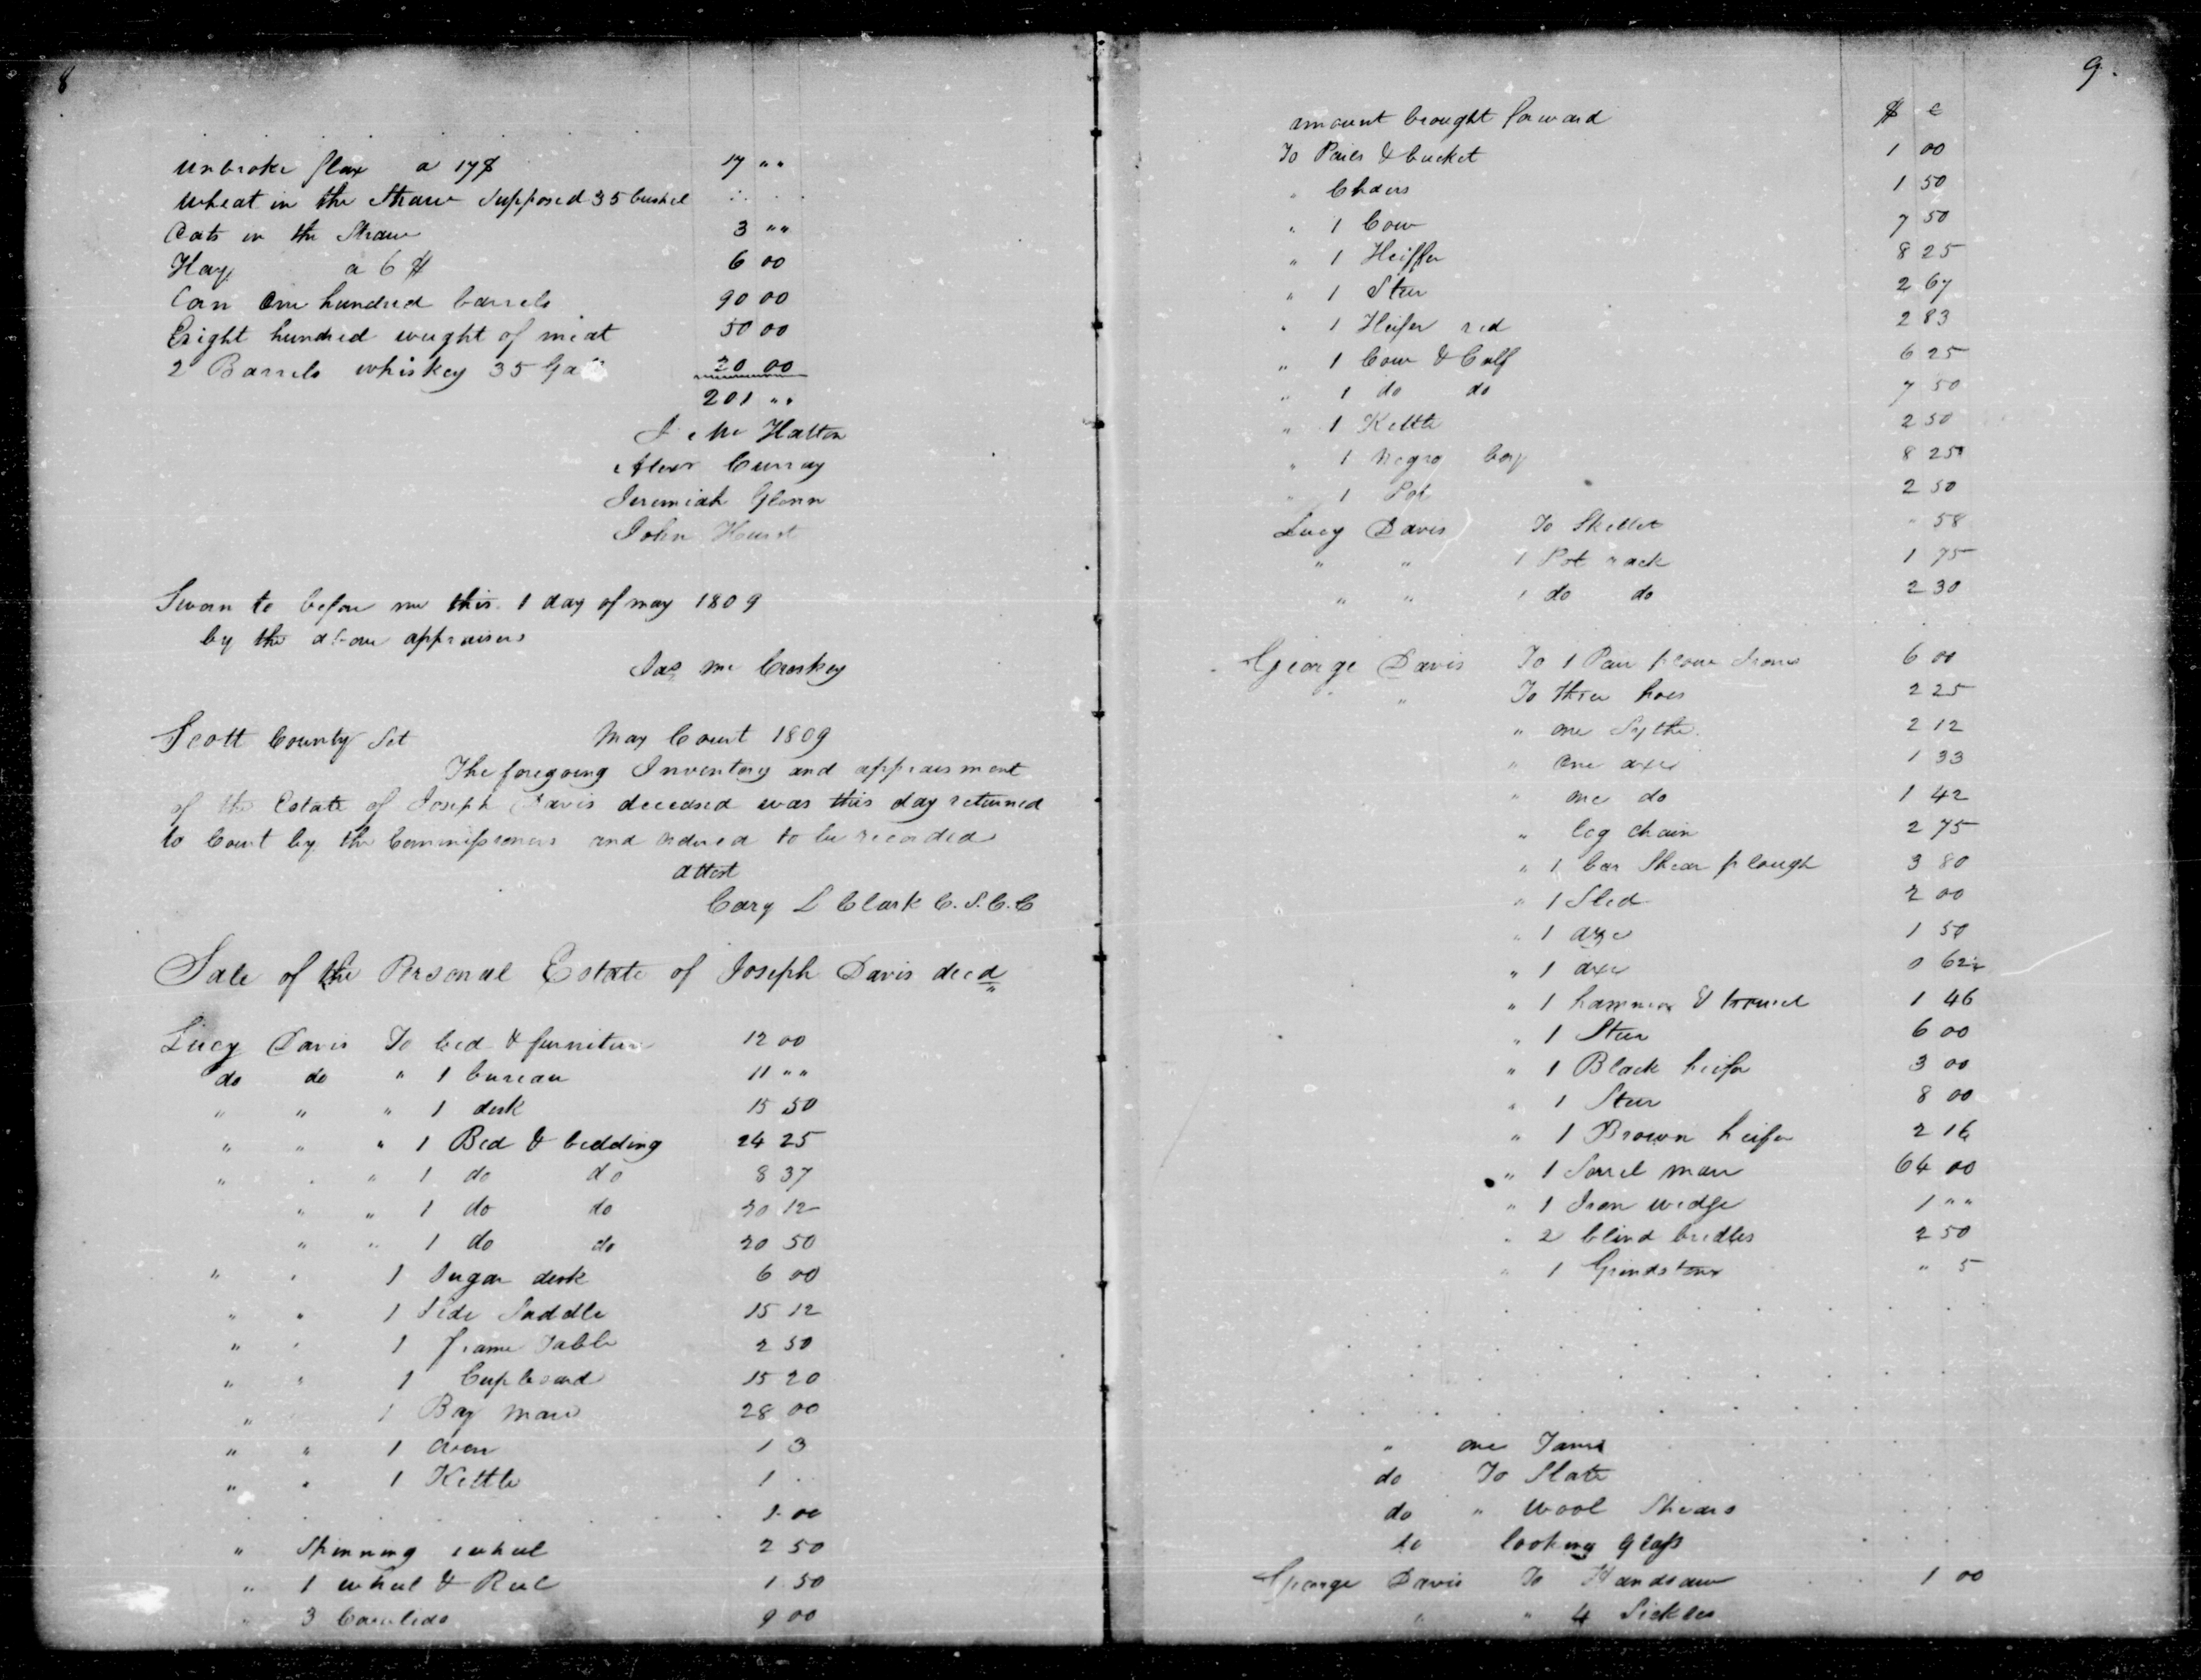 8
unbroke flax a 17$ 17 " "
wheat in the Straw Supposed 35 bushel
Oats in the Straw 3 " "
Hay a 6 $ 6 00
Corn One hundred barrels 90 00
Eright hundred weight of meat 50 00
2 Barrels whiskey 35 Ga
201 " "
Hatton
Alexr Curray
Jeremiah Glenn
John Hurst
Sworn to before me this 1 day of may 1809
by the above appraisers
Jas Mc Croskey
Scott County Sct May Court 1809
The foregoing Inventory and appraisment
of the Estate of Joseph Davis deceased was this day returned
to Court by the Commissioners and ordered to be recorded
attest
Cary L Clark C.S.C.C
Sale of the Personal Estate of Joseph Davis decd
Lucy Davis To bed & furniture 12 00
do do " 1 bureau 11 " "
" " " 1 desk 15 50
" " " 1 Bed & bedding 24 25
" " " 1 do do 8 37
" " 1 do do 12
" " 1 do do 20 50
" " 1 Sugar desk 6 00
" " 1 Side Saddle 15 12
" " 1 frame Table 2 50
" " 1 Cupboard 15 20
" 1 Bay mare 28 00
" " 1 oven 1 3
" " 1 Kettle 1
1 00
" Spinning wheel 2 50
" 1 wheel & Reel 1 50
" 3 9 00
9.
amount brought forward $ c
To Pails & bucket 1 00
" Chairs 1 50
" 1 Cow 7 50
" 1 Heiffer 8 25
" 1 Steer 2 67
" 1 Heifer red 2 83
" 1 Cow & Calf 6 25
" 1 do do 7 50
" 1 Kettle 2 50
" 1 negro boy 8 25
" 1 Pot 2 50
Lucy Davis To Skellet " 58
" " 1 Pot rack 1 75
" " 1 do do 2 30
George Davis To 1 Pair plow Irons 6 00
" " To three hoes 2 25
" one Sythe 2 12
" One axe 1 33
" one do 1 42
" log chain 2 75
" 1 bar Shear plough 3 80
" 1 Sled 2 00
" 1 axe 1 50
" 1 axe 0 62
" 1 hammer & trowel 1 46
" 1 Steer 6 00
" 1 Black heifer 3 00
" 1 Steer 8 00
" 1 Brown heifer 2 16
" 1 Sorrel mare 64 00
" 1 Iron wedge 1 " "
" 2 blind bridles 2 50
" 1 Grindstone " 5
" one
do To Slate
do " Wool Shears
do looking glass
George Davis To Handsaw 1 00
" " 4 Sickles